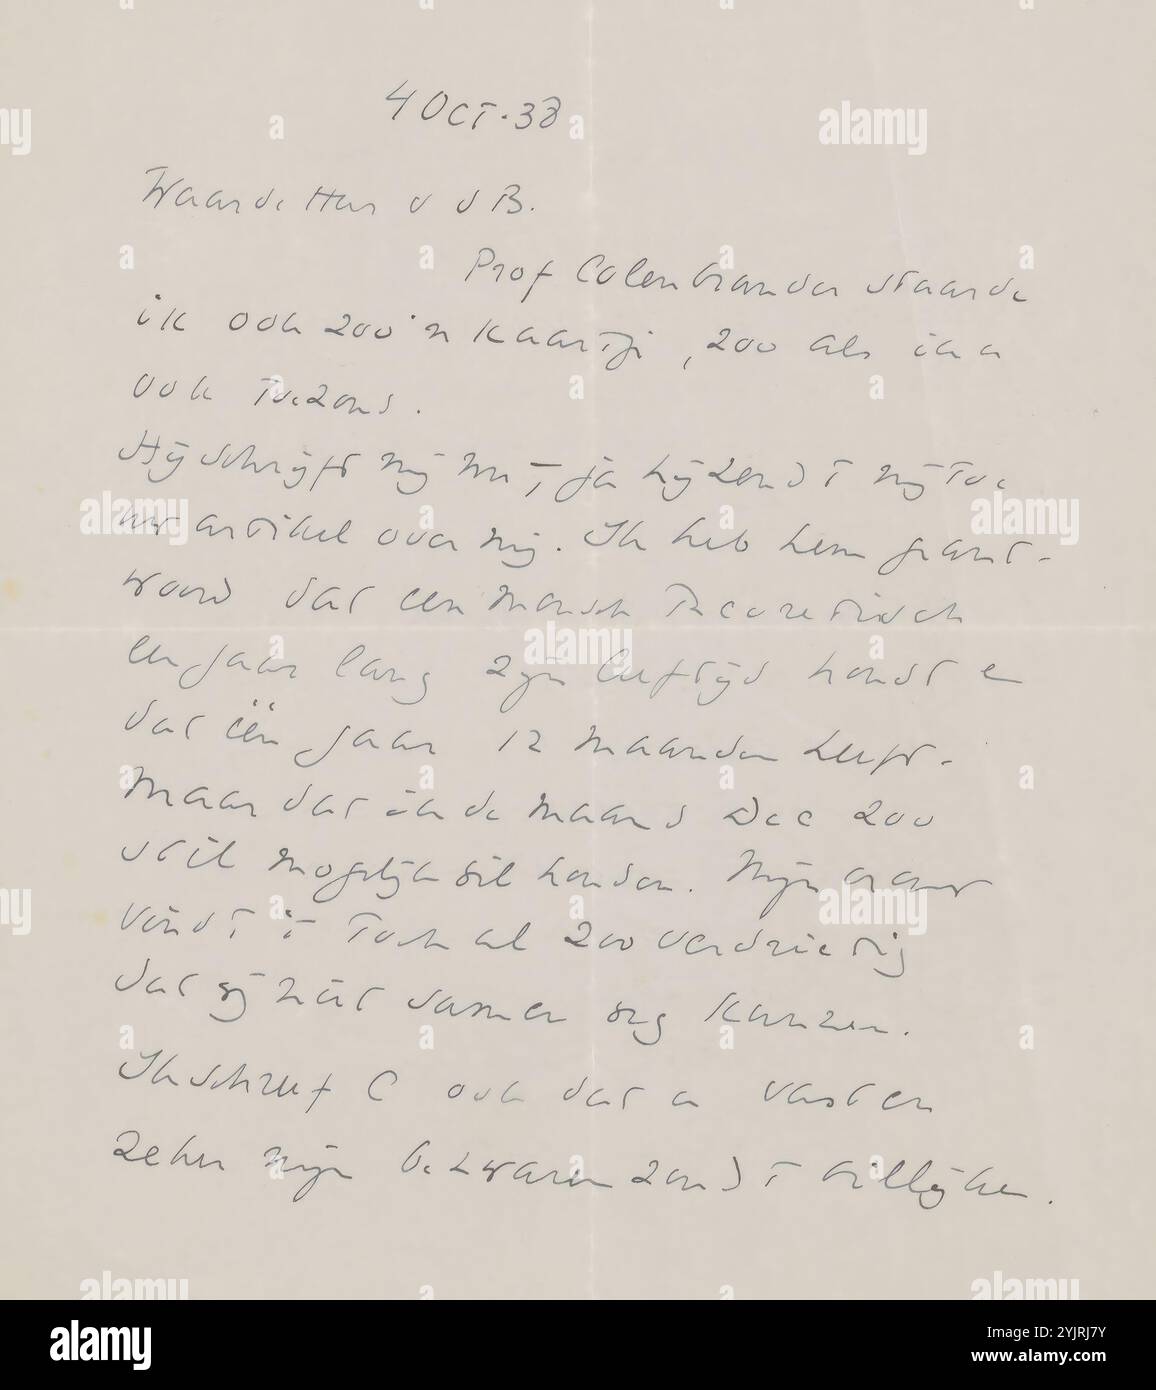 4 OCT. 38
Waarde Heer v d B.
Prof Colenbrander stuurde
ik ook zoo'n kaartje, zoo als ik u
ook toezond.
Hij schrijft mij nu, ja hij zendt mij toe
uw artikel over mij. Ik heb hem geant-
woord dat een mensch theoretisch
een jaar lang zijn leeftijd houdt en
dat één jaar 12 maanden heeft.
Maar dat ik de maand Dec zoo
stil mogelijk wil houden. Mijn vrouw
vindt 't toch al zoo verdrietig
dat wij niet samen weg kunnen.
Ik schreef C ook dat u vast en
zeker mijn bezwaren zoudt billijken.
a
alamy
Image ID: 2YJRJ7Y
www.alamy.com